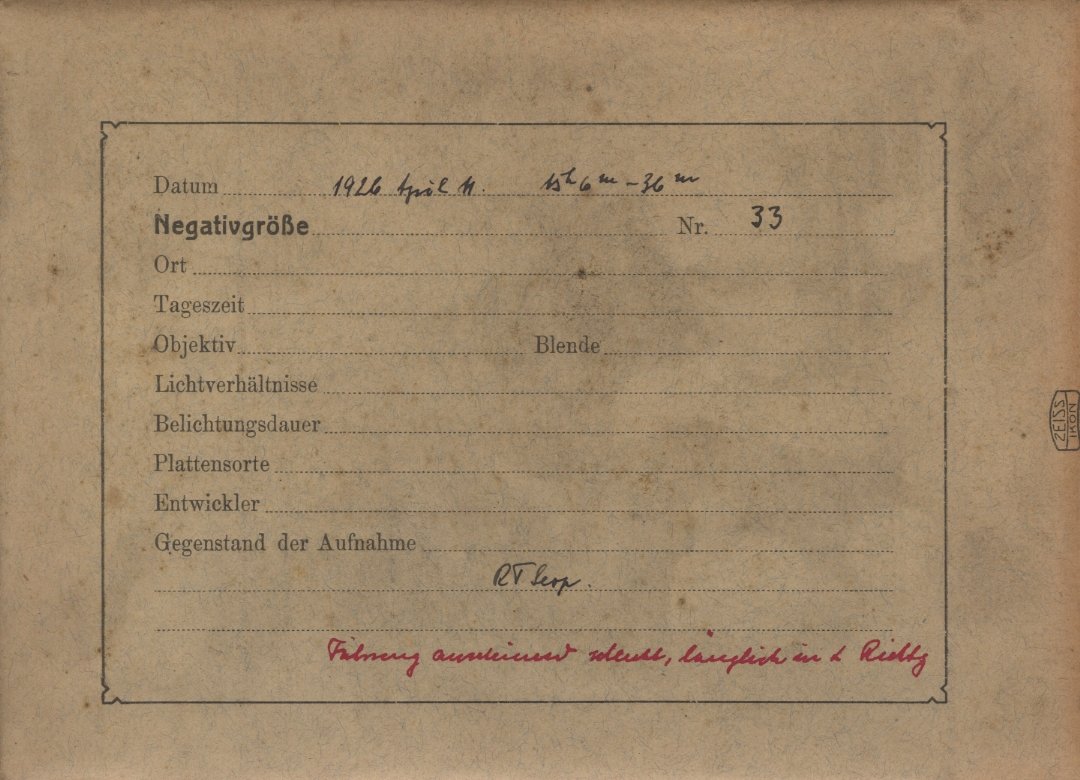 Datum 1926 April 11. 15h 6m – 36m
Negativgröße Nr. 33
Ort
Tageszeit
Objektiv Blende
Lichtverhältnisse
Belichtungsdauer
Plattensorte
Entwickler
Gegenstand der Aufnahme
RT Serp.
Führung anscheinend schlecht, länglich in Richtg
ZEISS
IKON